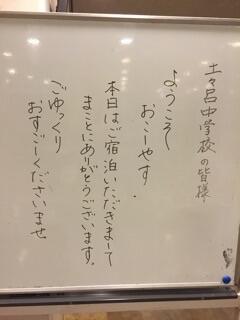 土々呂中学校の皆様
ようこそ
おこしやす
本日はご宿泊いただきまして
まことにありがとうございます。
ごゆっくり
おすごしくださいませ